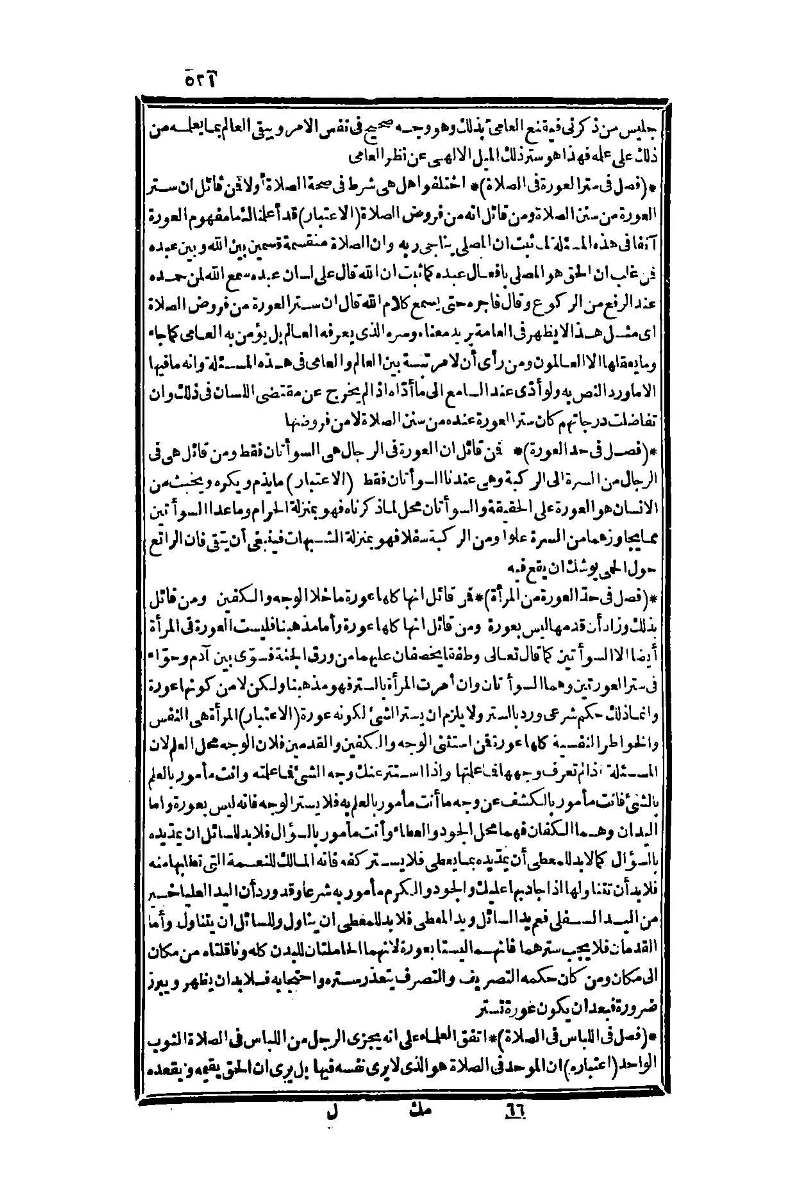 ٥٢١
جليس من ذكرنى فيقنع العامى بذلك وهو وجه صحيح فى نفس الامر ويبقى العالم بما يعلمه من
ذلك على علمه فهذا هو ستر ذلك الميل الالهى عن نظر العامى
*(فصل فى ستر العورة فى الصلاة)* اختلفوا هل هى شرط فى صحة الصلاة أولا فمن قائل ان ستر
العورة من سنن الصلاة ومن قائل انه من فروض الصلاة (الاعتبار) قد أعلمناك ما مفهوم العورة
آنفا فى هذه المسئلة لما ثبت ان المصلى يناجى ربه وان الصلاة منقسمة قسمين بين الله وبين عبده
فمن غاب ان الحق هو المصلى بافعال عبده كما ثبت ان الله قال على لسان عبده سمع الله لمن حمده
عند الرفع من الركوع وقال فاجره حتى يسمع كلام الله قال ان ستر العورة من فروض الصلاة
اى مثل هذا لا يظهر فى العامة يريد معناه وسره الذى يعرفه العالم بل يؤمن به العامى كما جاء
وما يعقلها الا العالمون ومن رأى أن لا مرتبة بين العالم والعامى فى هذه المسئلة وانه ما فيها
الا ما ورد النص به ولو أدى عند السامع الى ما أداه اذا لم يخرج عن مقتضى اللسان فى ذلك وان
تفاضلت درجاتهم كان ستر العورة عنده من سنن الصلاة لا من فروضها
*(فصل فى حد العورة)* فمن قائل ان العورة فى الرجال هى السوأتان فقط ومن قائل هى فى
الرجال من السرة الى الركبة وهى عندنا السوأتان فقط (الاعتبار) ما يذم ويكره ويخبث من
الانسان هو العورة على الحقيقة والسوأتان محل لما ذكرناه فهو بمنزلة الحرام وما عدا السوأتين
مما يجاوزهما من السرة علوا ومن الركبة سفلا فهو بمنزلة الشبهات فينبغى أن يتقى فان الراتع
حول الحمى يوشك ان يقع فيه
*(فصل فى حد العورة من المرأة)* فمن قائل انها كلها عورة ما خلا الوجه والكفين ومن قائل
بذلك وزاد أن قدمها ليس بعورة ومن قائل انها كلها عورة وأما مذهبنا فليست العورة فى المرأة
أيضا الا السوأتين كما قال تعالى وطفقا يخصفان عليهما من ورق الجنة فسوى بين آدم وحواء
فى ستر العورتين وهما السوأتان وان أمرت المرأة بالستر فهو مذهبنا ولكن لا من كونها عورة
وانما ذلك حكم شرعى ورد بالستر ولا يلزم ان يستر الشئ لكونه عورة (الاعتبار) المرأة هى النفس
والخواطر النفسية كلها عورة فمن استثنى الوجه والكفين والقدمين فلان الوجه محل العلم لان
المسئلة اذا لم تعرف وجهها فما علمتها واذا استتر عنك وجه الشئ فما علمته وانت مأمور بالعلم
بالشئ فانت مأمور بالكشف عن وجه ما أنت مأمور بالعلم به فلا يستر الوجه فانه ليس بعورة واما
اليدان وهما الكفان فهما محل الجود والعطاء وأنت مأمور بالسؤال فلا بد للسائل ان يمد يده
بالسؤال كما لا بد للمعطى أن يمد يده بما يعطى فلا يستر كفه فانه المالك للنعمة التى تطلبها منه
فلا بد أن تتناولها اذا جاد بها عليك والجود والكرم مأمور به شرعا وقد ورد أن اليد العليا خير
من اليد السفلى فعم يد السائل ويد المعطى فلا بد للمعطى ان يناول وللسائل ان يتناول وأما
القدمان فلا يجب سترهما فانهما ليستا بعورة لانهما الحاملتان للبدن كله وناقلتاه من مكان
الى مكان ومن كان حكمه التصريف والتصرف يتعذر ستره واحتجابه فلا بد ان يظهر ويبرز
ضرورة فبعد ان يكون عورة تستر
*(فصل فى اللباس فى الصلاة)* اتفق العلماء على انه يجزى الرجل من اللباس فى الصلاة الثوب
الواحد (اعتباره) ان الموحد فى الصلاة هو الذى لا يرى نفسه فيها بل يرى ان الحق يقيمه ويقعده
٦٦ مك ل